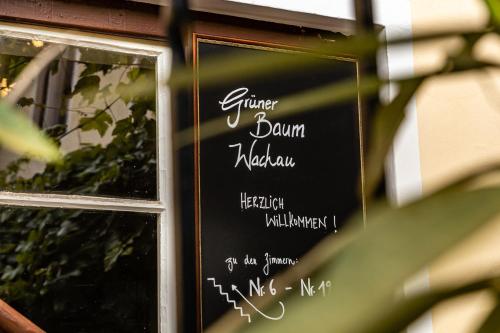 Grüner
Baum
Wachau
HERZLICH
WILLKOMMEN!
zu den Zimmern:
Nr. 6 - Nr. 1